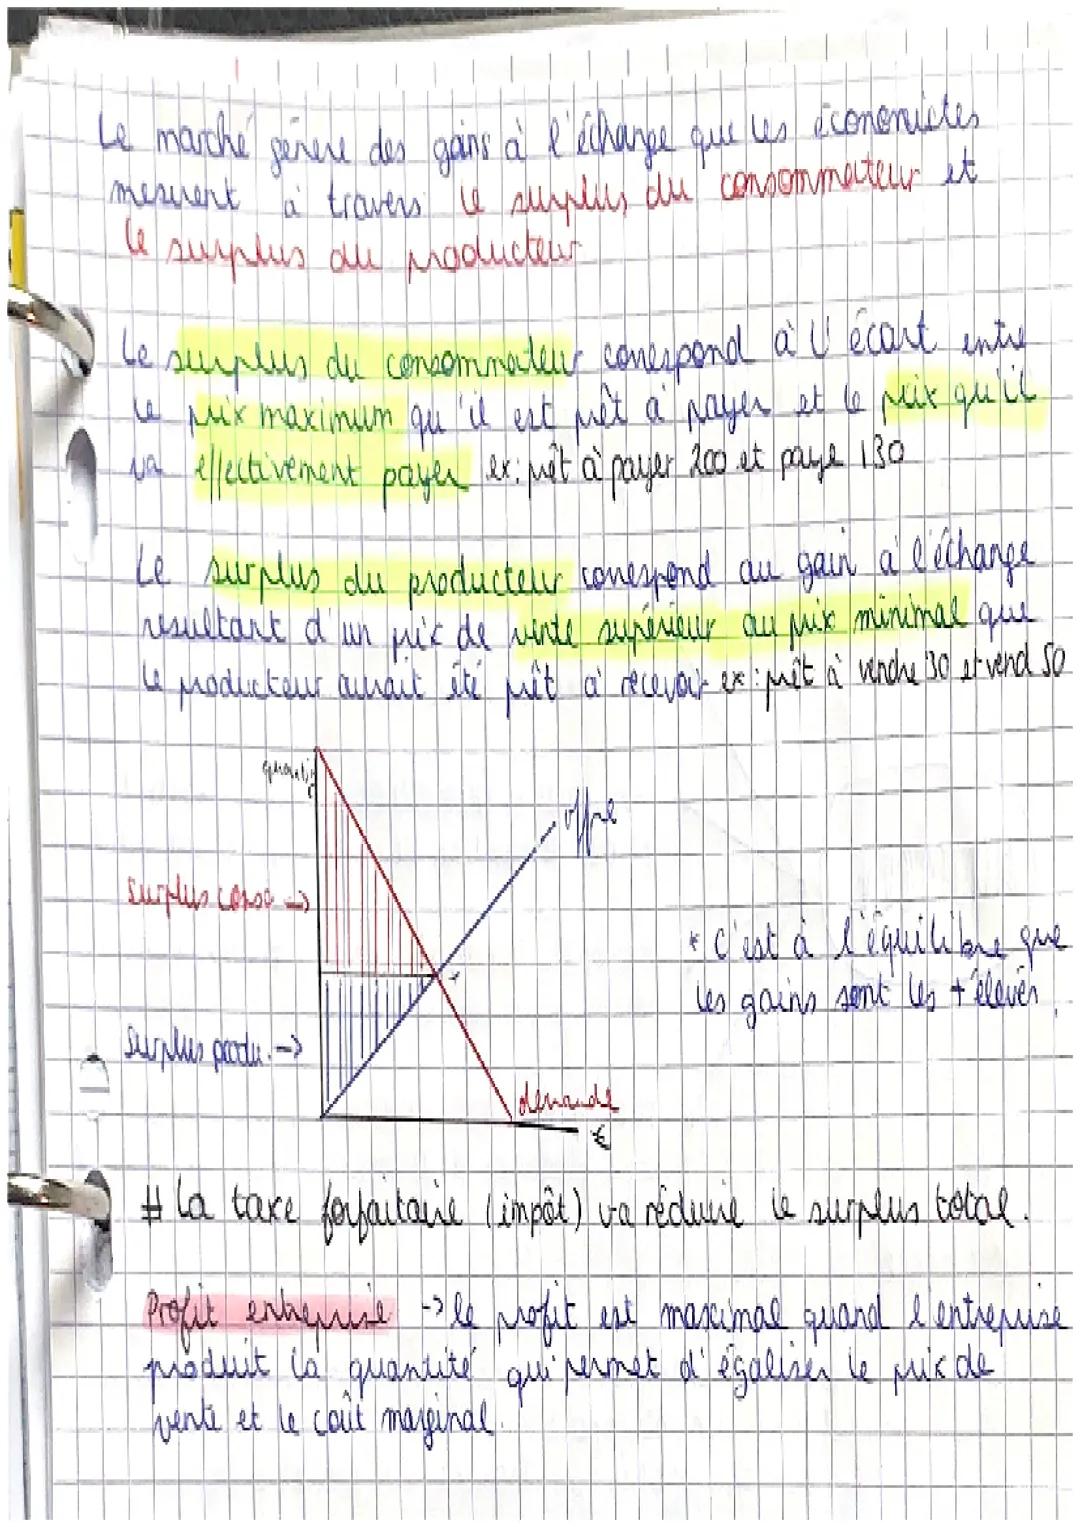 Le marché génère des gains à l'échange que les économistes
mesurent à travers le surplus du consommateur et
le surplus du producteur
Le surplus du consommateur correspond à l'écart entre
le prix maximum qu'il est prêt à payer et le prix qu'il
va effectivement payer ex: prêt à payer 200 et paye 130
Le surplus du producteur correspond au gain à l'échange
resultant d'un prix de vente supérieur au prix minimal que
le producteur aurait été prêt à recevoir ex: prêt à vendre 30 et vend 50
offre
surplus conso ->
* C'est à l'équilibre que
les gains sont les + élevés.
surplus produ. ->
demande
€
# La taxe forfaitaire (impôt) va réduire le surplus total.
Profit entreprise -> le profit est maximal quand l'entreprise
produit la quantité qui permet d'égaliser le prix de
vente et le coût marginal.